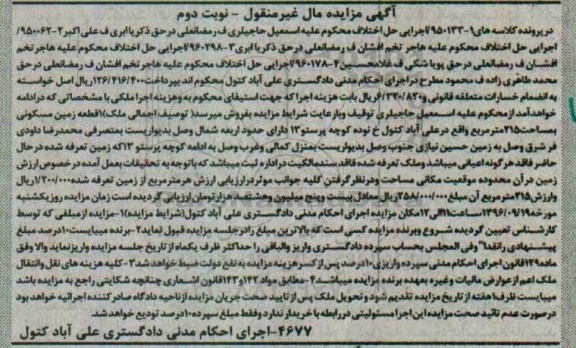 آگهی مزایده مال غیرمنقول - نوبت دوم
در پرونده کلاسه های ۱-۹۵۰۱۳۳/اجرایی حل اختلاف محکوم علیه اسمعیل حاجیلری ف رمضانعلی در حق ذکریا ایری ف علی اکبر ۲-۹۵۰۰۶۲/
اجرایی حل اختلاف محکوم علیه هاجر تخم افشان ف رمضانعلی در حق ذکریا ایری ۳-۹۶۰۲۹۸/اجرایی حل اختلاف محکوم علیه هاجر تخم
افشان ف رمضانعلی در حق پویا شکی ف غلامحسین ۴-۹۶۰۱۷۸/اجرایی حل اختلاف محکوم علیه هاجر تخم افشان ف رمضانعلی در حق
محمد طاهری زاده ف محمود مطرح در اجرای احکام مدنی دادگستری علی آباد کتول محکوم اند بپرداخت ۱۲۶/۴۱۶/۴۰۰ریال اصل خواسته
به انضمام خسارات متعلقه قانونی و ۶/۳۳۰/۸۲۰ریال بابت هزینه اجرا که جهت استیفای محکوم به وهزینه اجرا ملکی با مشخصاتی که در ادامه
خواهد آمد از محکوم علیه اسمعیل حاجیلری توقیف وبا رعایت شرایط مزایده بفروش میرسد( توصیف اجمالی ملک)۱قطعه زمین مسکونی
بمساحت۳۱۵مترمربع واقع در علی آباد کتول خ نوده کوچه پرستو۱۲ دارای حدود اربعه شمال وصل بدیواریست بمتصرفی محمدرضا داودی
فر شرق وصل به زمین حسین نیازی جنوب وصل بدیواریست بمنزل کمالی وغرب وصل به ادامه کوچه پرستو ۱۲که زمین تعرفه شده در حال
حاضر فاقد هرگونه اعیانی میباشد وملک تعرفه شده فاقد سند مالکیت در اداره ثبت میباشد که با توجه به تحقیقات بعمل آمده در خصوص ارزش
زمین در آن محدوده موقعیت مکانی مساحت ودر نظر گرفتن کلیه جوانب موثر در ارزیابی ارزش هر مترمربع از زمین تعرفه شده ۱/۲۰۰/۰۰۰ریال
وارزش ۳۱۵مترمربع آن مبلغ ریال معادل بیست وپنج میلیون وهشتصد هزار تومان ارزیابی گردیده است زمان مزایده روز یکشنبه
مورخه ۱۳۹۶/۰۹/۱۹ساعت۱۱الی۱۲مکان مزایده اجرای احکام مدنی دادگستری علی آباد کتول(شرایط مزایده)۱-مزایده از مبلغی که توسط
کارشناس تعیین گردیده شروع وبرنده مزایده کسی است که بالاترین مبلغ را در جلسه مزایده قبول نماید ۲-برنده میبایست۱۰درصد مبلغ
پیشنهادی را نقدا" وفی المجلس بحساب سپرده دادگستری واریز والباقی را حداکثر ظرف یکماه از تاریخ جلسه مزایده واریز نماید والا وفق
ماده۱۲۹قانون اجرای احکام مدنی سپرده واریزی ۱۰درصد پس از کسر هزینه مزایده به نفع دولت ضبط خواهد شد ۳-کلیه هزینه های نقل وانتقال
ملک اعم از عوارض مالیات وغیره بعهده برنده مزایده میباشد ۴-مطابق مواد ۱۴۲و۱۴۳قانون اشعاری چنانچه شکایتی راجع به مزایده باشد
میبایست ظرف۱هفته از تاریخ مزایده تقدیم شود وتحویل ملک پس از تایید صحت جریان مزایده از ناحیه دادگاه صادر کننده اجرائیه خواهد بود
در صورت عدم تائید صحت مزایده این اجرا مسئولیتی در رابطه با خریدار ندارد وفقط مبلغ سپرده ۱۰درصد تودیع خواهد شد.
۴۶۷۷-اجرای احکام مدنی دادگستری علی آباد کتول